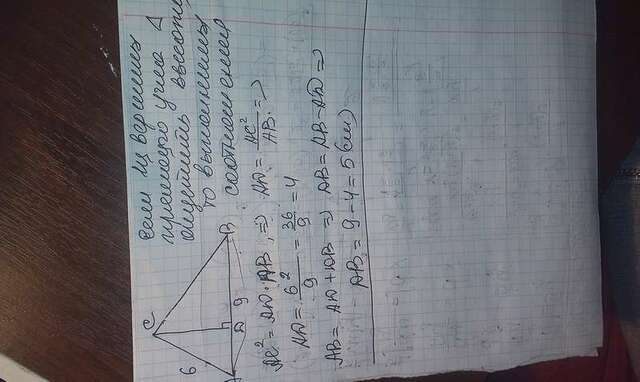 Если из вершины
прямого угла Δ
опустить высоту,
то выполнимы
соотношения
C
6
A
D
9
B
AC² = AD·AB, => AD = AC²/AB. =>
AD = 6²/9 = 36/9 = 4
AB = AD + DB => DB = AB - AD =>
DB = 9 - 4 = 5 (см)